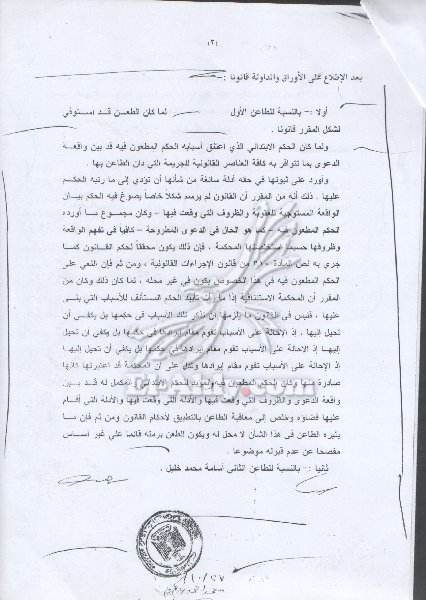 (٢)
بعد الإطلاع على الأوراق والمداولة قانونا :-
أولا :- بالنسبة للطاعن الأول لما كان الطعن قد استوفي
الشكل المقرر قانونا .
ولما كان الحكم الابتدائي الذي اعتنق أسبابه الحكم المطعون فيه قد بين واقعة
الدعوى بما تتوافر به كافة العناصر القانونية للجريمة التي دان الطاعن بها .
وأورد على ثبوتها في حقه أدلة سائغة من شأنها أن تؤدي إلى ما رتبه الحكم
عليها . ذلك أنه من المقرر أن القانون لم يرسم شكلا خاصا يصوغ فيه الحكم بيان
الواقعة المستوجبة للعقوبة والظروف التي وقعت فيها - وكان مجموع ما أورده
الحكم المطعون فيه - كما هو الحال في الدعوى المطروحة - كافيا في تفهم الواقعة
وظروفها حسبما استخلصتها المحكمة . فإن ذلك يكون محققا لحكم القانون كما
جرى به نص المادة ٣١٠ من قانون الإجراءات القانونية ، ومن ثم فإن النعي على
الحكم المطعون فيه في هذا الخصوص يكون في غير محله ، لما كان ذلك وكان من
المقرر أن المحكمة الاستئنافية إذا ما رأت تأييد الحكم المستأنف للأسباب التي بنى
عليها ، فليس في القانون ما يلزمها أن تذكر تلك الأسباب في حكمها بل يكفي أن
تحيل إليها ، إذ الإحالة على الأسباب تقوم مقام إيرادها في حكمها بل يكفي أن تحيل
إليها إذ الإحالة على الأسباب تقوم مقام إيرادها في حكمها بل يكفي أن تحيل إليها
إذ الإحالة على الأسباب تقوم مقام إيرادها وتدل على أن المحكمة قد اعتبرتها كأنها
صادرة منها وكان الحكم المطعون فيه والمؤيد للحكم الابتدائي والمكمل له قد بين
واقعة الدعوى والظروف التي وقعت فيها والأدلة التي وقعت فيها والأدلة التي أقام
عليها قضاؤه وخلص إلى معاقبة الطاعن بالتطبيق لأحكام القانون ومن ثم فإن ما
يثيره الطاعن في هذا الشأن لا محل له ويكون الطعن برمته قائما على غير أساس
مفصحا عن عدم قبوله موضوعا .
ثانيا :- بالنسبة للطاعن الثاني أسامة محمد خليل .